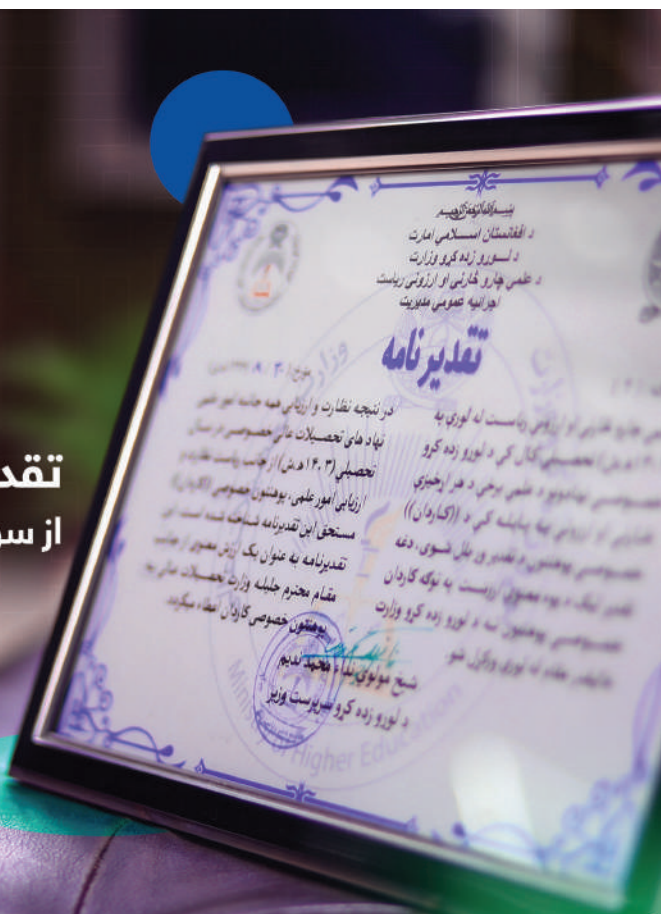 د افغانستان اسلامي امارت
د لورو زده کړو وزارت
د علمي چارو څارنې او ارزونې ریاست
اجرائیه عمومي مدیریت
تقدیرنامه
در نتیجه نظارت و ارزیابی همه جانبه امور علمی
نهاد های تحصیلات عالی خصوصی در سال
تحصیلی (۱۴۰۳ هـ.ش) از جانب ریاست نظارت و
ارزیابی امور علمی، پوهنتون خصوصی (کاردان)
مستحق این تقدیرنامه شناخته شده است. این
تقدیرنامه به عنوان یک ارزش معنوی از جانب
مقام محترم جلیله وزارت تحصیلات عالی به
پوهنتون خصوصی کاردان اعطاء میگردد.
علمي چارو څارنې او ارزونې ریاست له لوري په
تحصیلي کال کې د لورو زده کړو
څارنې او ارزونې په پایله کې د ((کاردان))
خصوصي پوهنتون د تقدیر وړ بلل شوی، دغه
تقدیر لیک د یوه معنوي ارزښت په توګه کاردان
خصوصي پوهنتون ته د لورو زده کړو وزارت
شیخ مولوي نداء محمد ندیم
د لورو زده کړو سرپرست وزیر
Ministry of Higher Education
از سو